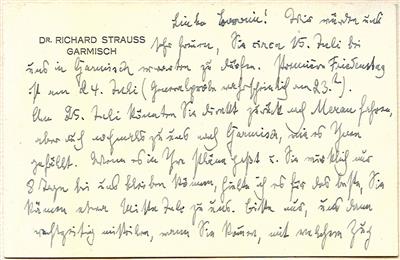 Liebe Baronin! Wir würden uns
DR. RICHARD STRAUSS
GARMISCH
sehr freuen, Sie circa 15. Juli bei
uns in Garmisch erwarten zu dürfen. Premiere Friedenstag
ist am 24. Juli (Generalprobe wahrscheinlich am 23.?).
Am 25. Juli könnten Sie direkt zurück nach Meran fahren,
aber auch nochmals zu uns nach Garmisch, wie es Ihnen
gefällt. Wenn es in Ihre Pläne paßt u. Sie wirklich nur
8 Tage bei uns bleiben können, hielte ich es für das beste, Sie
kämen etwa Mitte Juli zu uns. Bitte uns, uns dann
rechtzeitig mitteilen, wann Sie kommen, mit welchem Zug